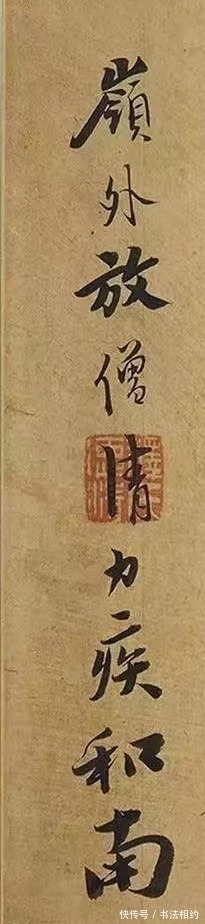 嶺外放僧清力疾和南
快传号/书法相约